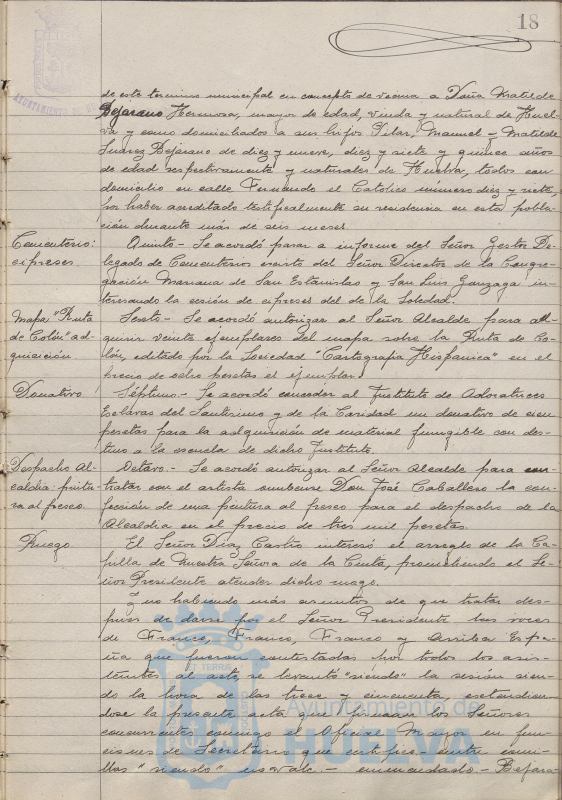 18
de este termino municipal en concepto de vecina a Doña Matilde
Bejarano Hermosa, mayor de edad, viuda y natural de Huel-
va y como domiciliados a sus hijos Pilar, Manuel y Matilde
Suarez Bejarano de diez y nueve, diez y siete y quince años
de edad respectivamente y naturales de Huelva, todos con
domicilio en calle Fernando el Católico número diez y siete,
por haber acreditado testificalmente su residencia en esta pobla-
ción durante más de seis meses.
Cementerio: cipreses
Quinto.- Se acordó pasar a informe del Señor Gestor De-
legado de Cementerios escrito del Señor Director de la Congre-
gación Mariana de San Estanislao y San Luis Gonzaga in-
teresando la cesión de cipreses del de la Soledad.
Mapa "Ruta
de Colón" ad-
quisición.
Sexto.- Se acordó autorizar al Señor Alcalde para ad-
quirir veinte ejemplares del mapa sobre la Ruta de Co-
lón, editado por la Sociedad "Cartografía Hispanica" en el
precio de ocho pesetas el ejemplar.
Donativo
Séptimo.- Se acordó conceder al Instituto de Adoratrices
Esclavas del Santisimo y de la Caridad un donativo de cien
pesetas para la adquisición de material fungible con des-
tino a la escuela de dicho Instituto.
Despacho Al-
caldia pintu-
ra al fresco.
Octavo.- Se acordó autorizar al Señor Alcalde para con-
tratar con el artista onubense Don José Caballero la con-
fección de una pintura al fresco para el despacho de la
Alcaldia en el precio de tres mil pesetas.
Ruego
El Señor Diaz Castro interesó el arreglo de la Ca-
pilla de Nuestra Señora de la Cinta, prometiendo el Se-
ñor Presidente atender dicho ruego.
Y no habiendo más asuntos de que tratar des-
pues de darse por el Señor Presidente las voces
de Franco, Franco, Franco y Arriba Espa-
ña que fueron contestadas por todos los asis-
tentes al acto, se levantó "siendo" la sesión sien-
do la hora de las trece y cincuenta, extendien-
dose la presente acta que firman los Señores
concurrentes conmigo el Oficial Mayor en fun-
ciones de Secretario que certifico = entre comi-
llas "siendo" no vale - enmendado - Bejara-
Ayuntamiento de
HUELVA